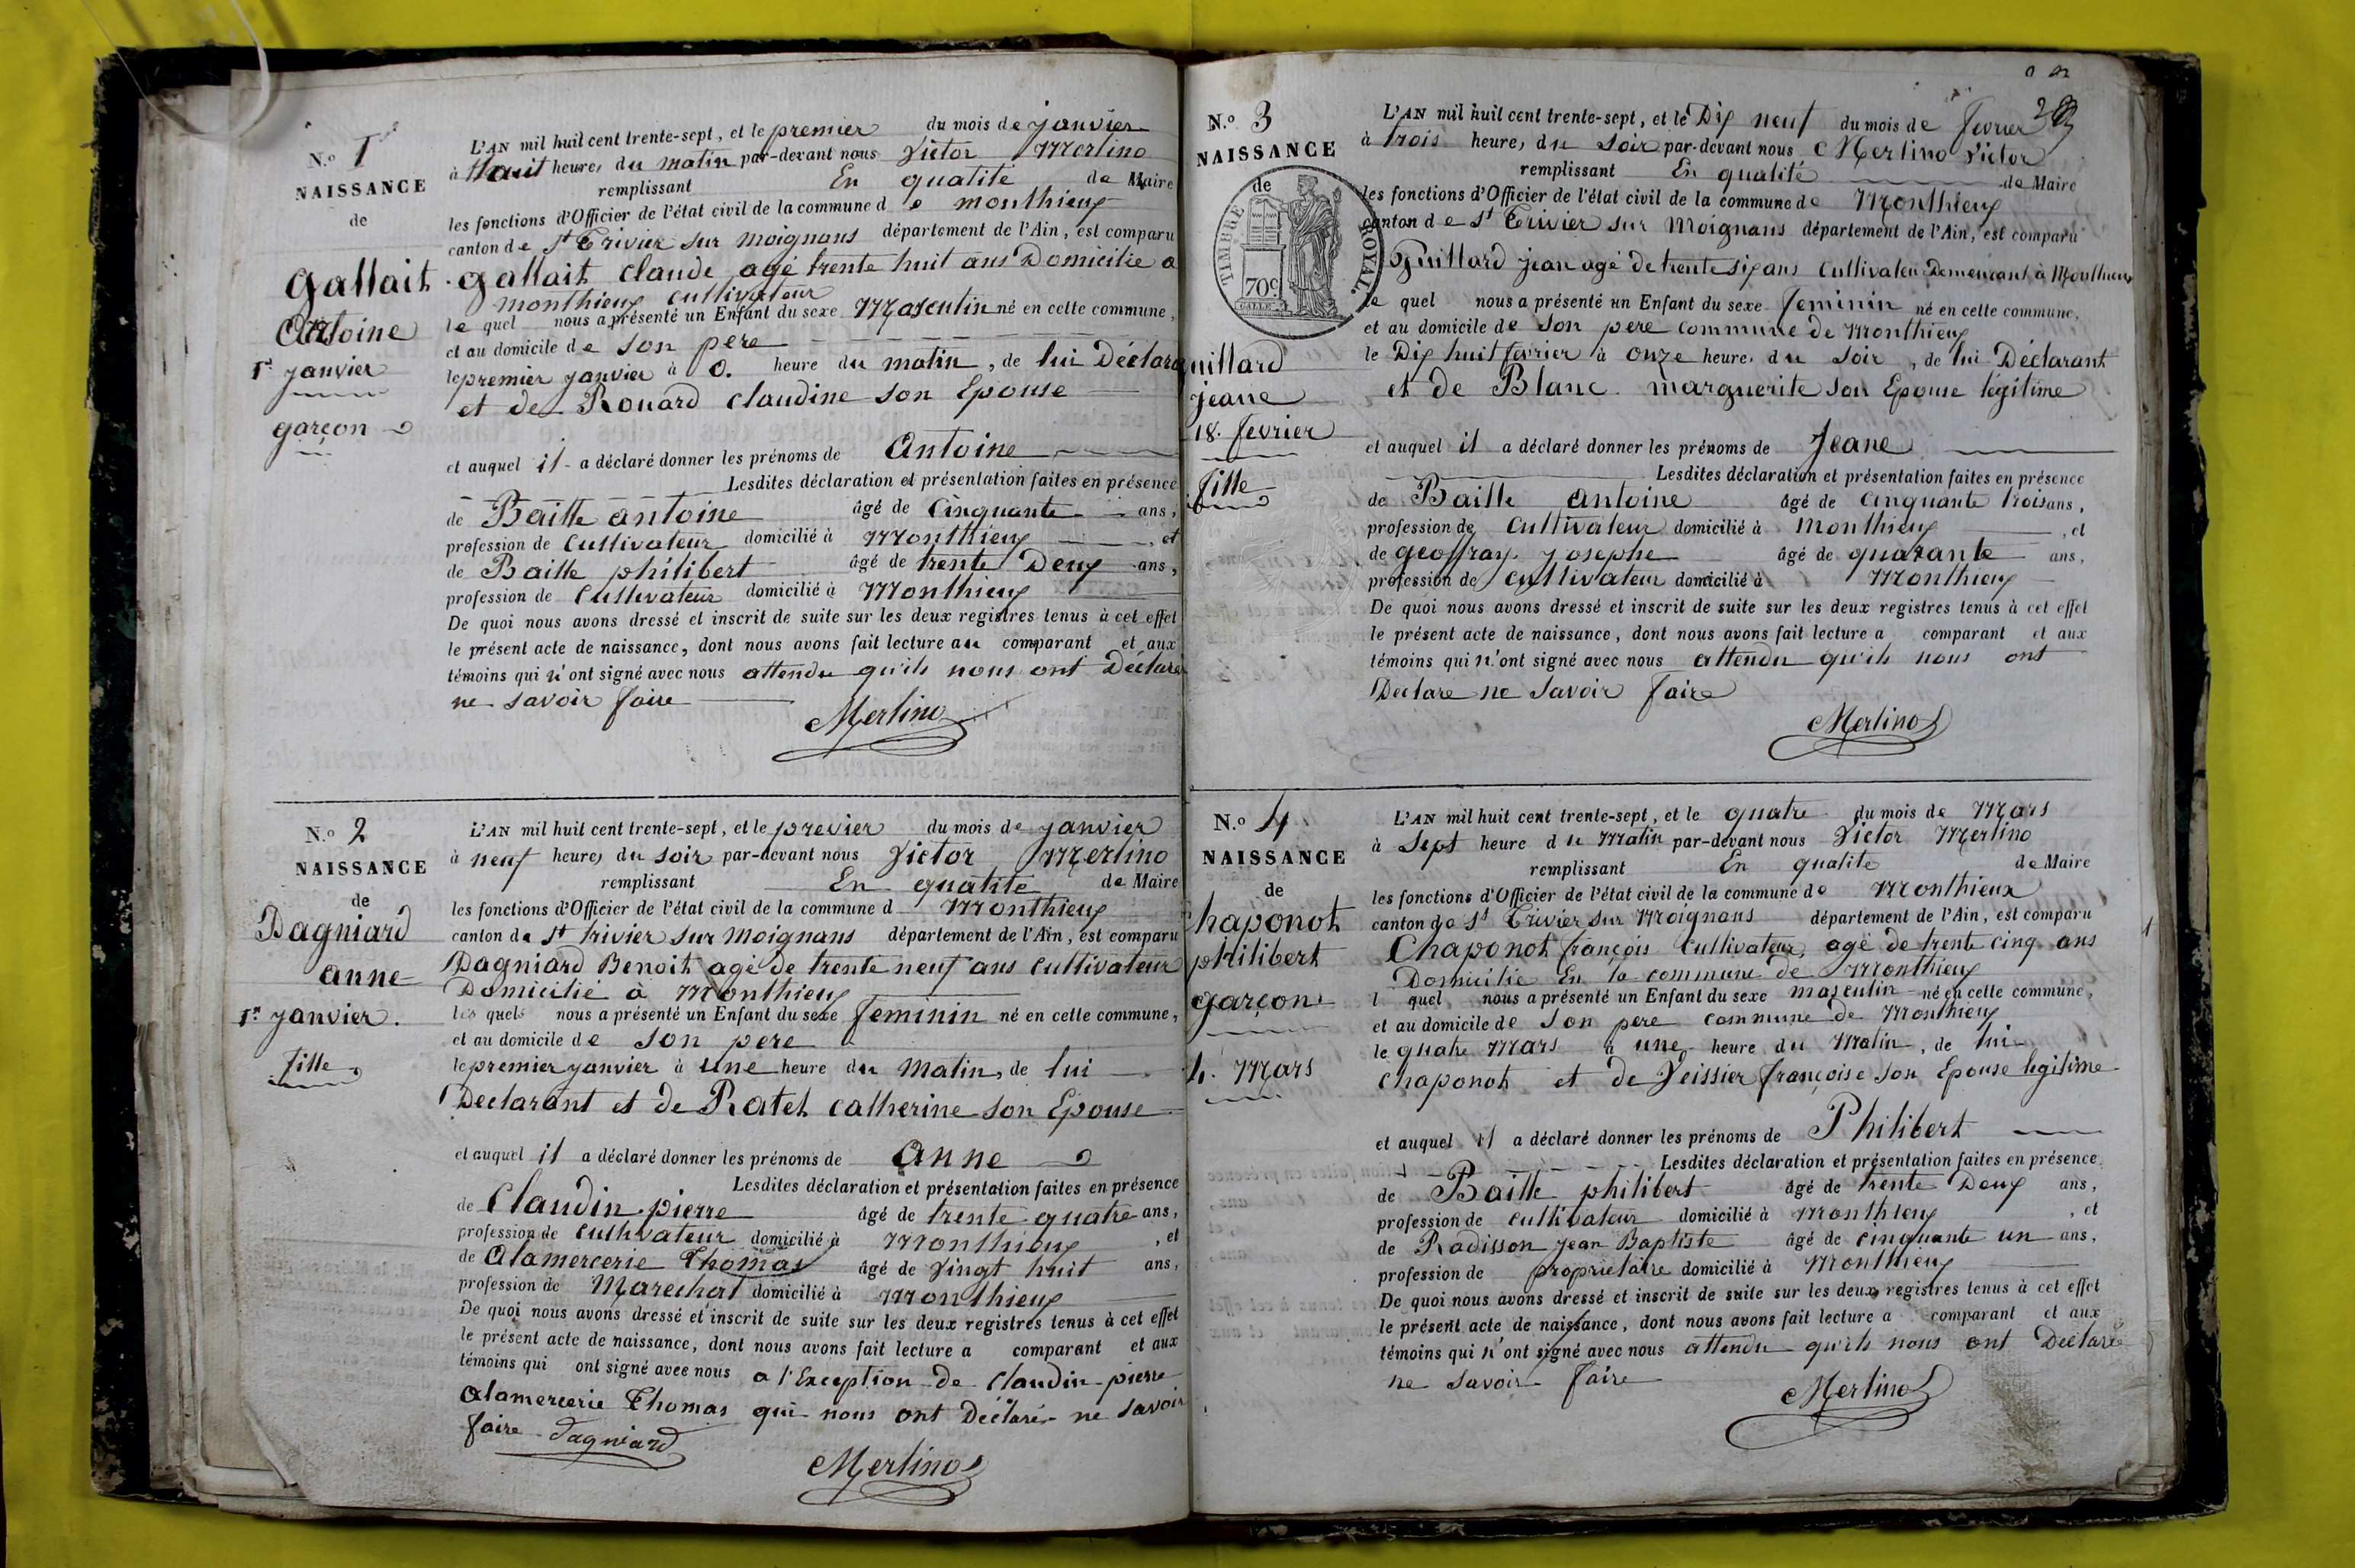 N.º 1
NAISSANCE
de
Gallait
Antoine
1r janvier
garçon
L'AN mil huit cent trente-sept, et le premier du mois de janvier
à Huit heures du matin par-devant nous Victor Merlino
remplissant En qualité de Maire
les fonctions d'Officier de l'état civil de la commune de monthieux
canton de St Trivier sur moignans département de l'Ain, est comparu
gallait claude agé trente huit ans Domicilié a
monthieux cultivateur
le quel nous a présenté un Enfant du sexe Masculin né en cette commune,
et au domicile de son pere
le premier janvier à 0. heure du matin, de lui Déclara
et de Rouard claudine son Epouse
et auquel il a déclaré donner les prénoms de Antoine
Lesdites déclaration et présentation faites en présence
de Baille antoine âgé de Cinquante ans,
profession de Cultivateur domicilié à Monthieux, et
de Baille philibert âgé de trente Deux ans,
profession de Cultivateur domicilié à Monthieux
De quoi nous avons dressé et inscrit de suite sur les deux registres tenus à cet effet
le présent acte de naissance, dont nous avons fait lecture au comparant et aux
témoins qui n'ont signé avec nous attendu qu'ils nous ont Déclaré
ne savoir faire
Merlino
N.º 2
NAISSANCE
de
Dagniard
anne
1r janvier.
fille
L'AN mil huit cent trente-sept, et le previer du mois de janvier
à neuf heures du soir par-devant nous Victor Merlino
remplissant En qualité de Maire
les fonctions d'Officier de l'état civil de la commune d Monthieux
canton de St trivier sur moignans département de l'Ain, est comparu
Dagniard Benoit agé de trente neuf ans cultivateur
Domicilié à Monthieux
les quels nous a présenté un Enfant du sexe feminin né en cette commune,
et au domicile de son pere
le premier janvier à une heure du matin, de lui
Declarant et de Ratet catherine son Epouse
et auquel il a déclaré donner les prénoms de anne
Lesdites déclaration et présentation faites en présence
de Claudin pierre âgé de trente quatre ans,
profession de cultivateur domicilié à Monthieux, et
de Alamercerie Thomas âgé de Vingt huit ans,
profession de Marechal domicilié à Monthieux
De quoi nous avons dressé et inscrit de suite sur les deux registres tenus à cet effet
le présent acte de naissance, dont nous avons fait lecture a comparant et aux
témoins qui ont signé avec nous a l'Exception de Claudin pierre
alamercerie Thomas qui nous ont Déclaré ne savoir
faire Dagniard
Merlino
N.º 3
NAISSANCE
de
TIMBRE ROYAL.
70c
uillard
jeane
18. fevrier
fille
L'AN mil huit cent trente-sept, et le Dix neuf du mois de fevrier
à trois heures du soir par-devant nous Merlino Victor
remplissant En qualité de Maire
les fonctions d'Officier de l'état civil de la commune de Monthieux
canton de St Trivier sur Moignans département de l'Ain, est comparu
Guillard jean agé de trente six ans Cultivateur Demeurant à Monthieux
le quel nous a présenté un Enfant du sexe feminin né en cette commune,
et au domicile de son pere commune de Monthieux
le Dix huit fevrier à onze heures du soir, de lui Déclarant
et de Blanc marguerite son Epouse légitime
et auquel il a déclaré donner les prénoms de Jeane
Lesdites déclaration et présentation faites en présence
de Baille antoine âgé de Cinquante trois ans,
profession de Cultivateur domicilié à Monthieux, et
de geoffray josephe âgé de quarante ans,
profession de cultivateur domicilié à Monthieux
De quoi nous avons dressé et inscrit de suite sur les deux registres tenus à cet effet
le présent acte de naissance, dont nous avons fait lecture a comparant et aux
témoins qui n'ont signé avec nous attendu qu'ils nous ont
Declare ne savoir faire
Merlino
N.º 4
NAISSANCE
de
haponot
philibert
garçon
4. Mars
L'AN mil huit cent trente-sept, et le quatre du mois de Mars
à Sept heure du Matin par-devant nous Victor Merlino
remplissant En qualite de Maire
les fonctions d'Officier de l'état civil de la commune de Monthieux
canton de St Trivier sur Moignans département de l'Ain, est comparu
Chaponot françois Cultivateur, agé de trente cinq ans
Domicilié En la commune de Monthieux
l quel nous a présenté un Enfant du sexe masculin né en cette commune,
et au domicile de son pere commune de Monthieux
le quatre Mars à une heure du Matin, de lui
chaponot et de Veissier françoise son Epouse legitime
et auquel il a déclaré donner les prénoms de Philibert
Lesdites déclaration et présentation faites en présence
de Baille philibert âgé de trente Deux ans,
profession de cultivateur domicilié à Monthieux, et
de Radisson jean Baptiste âgé de cinquante un ans,
profession de propriétaire domicilié à Monthieux
De quoi nous avons dressé et inscrit de suite sur les deux registres tenus à cet effet
le présent acte de naissance, dont nous avons fait lecture a comparant et aux
témoins qui n'ont signé avec nous attendu qu'ils nous ont Déclaré
ne savoir faire
Merlino